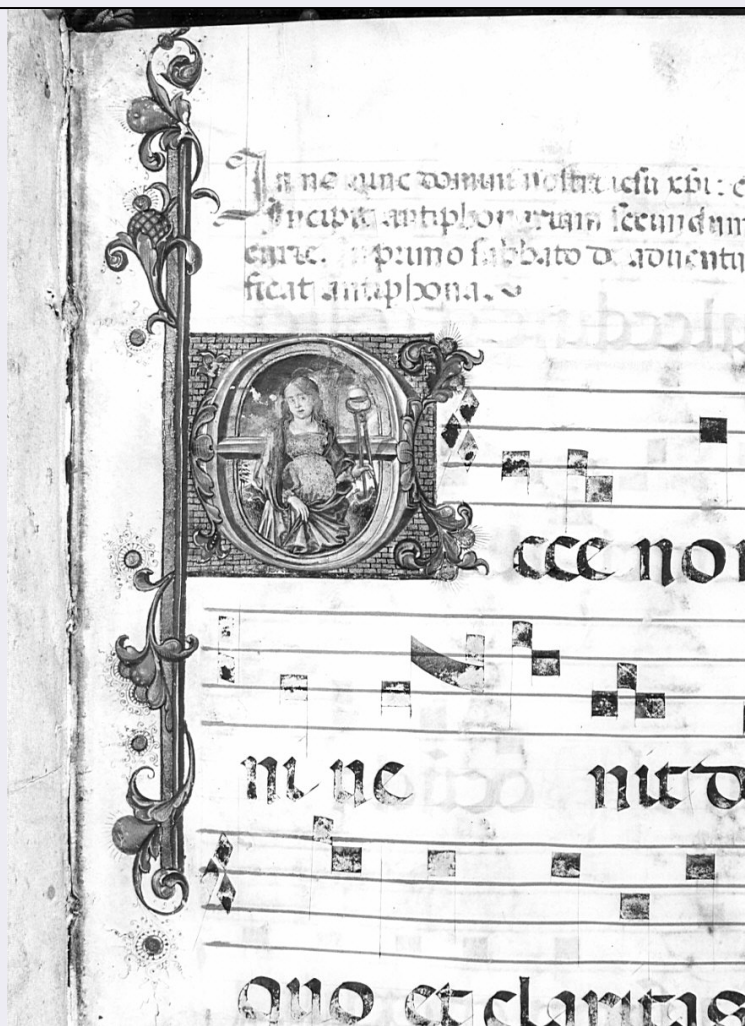 In no nomine domini nostri iesu xpi: c
Incipit antiphonarium secundum
curie. In primo sabbato de aduentu
ficat antiphona.
Ecce no
ni ne nit d
quo et claritas